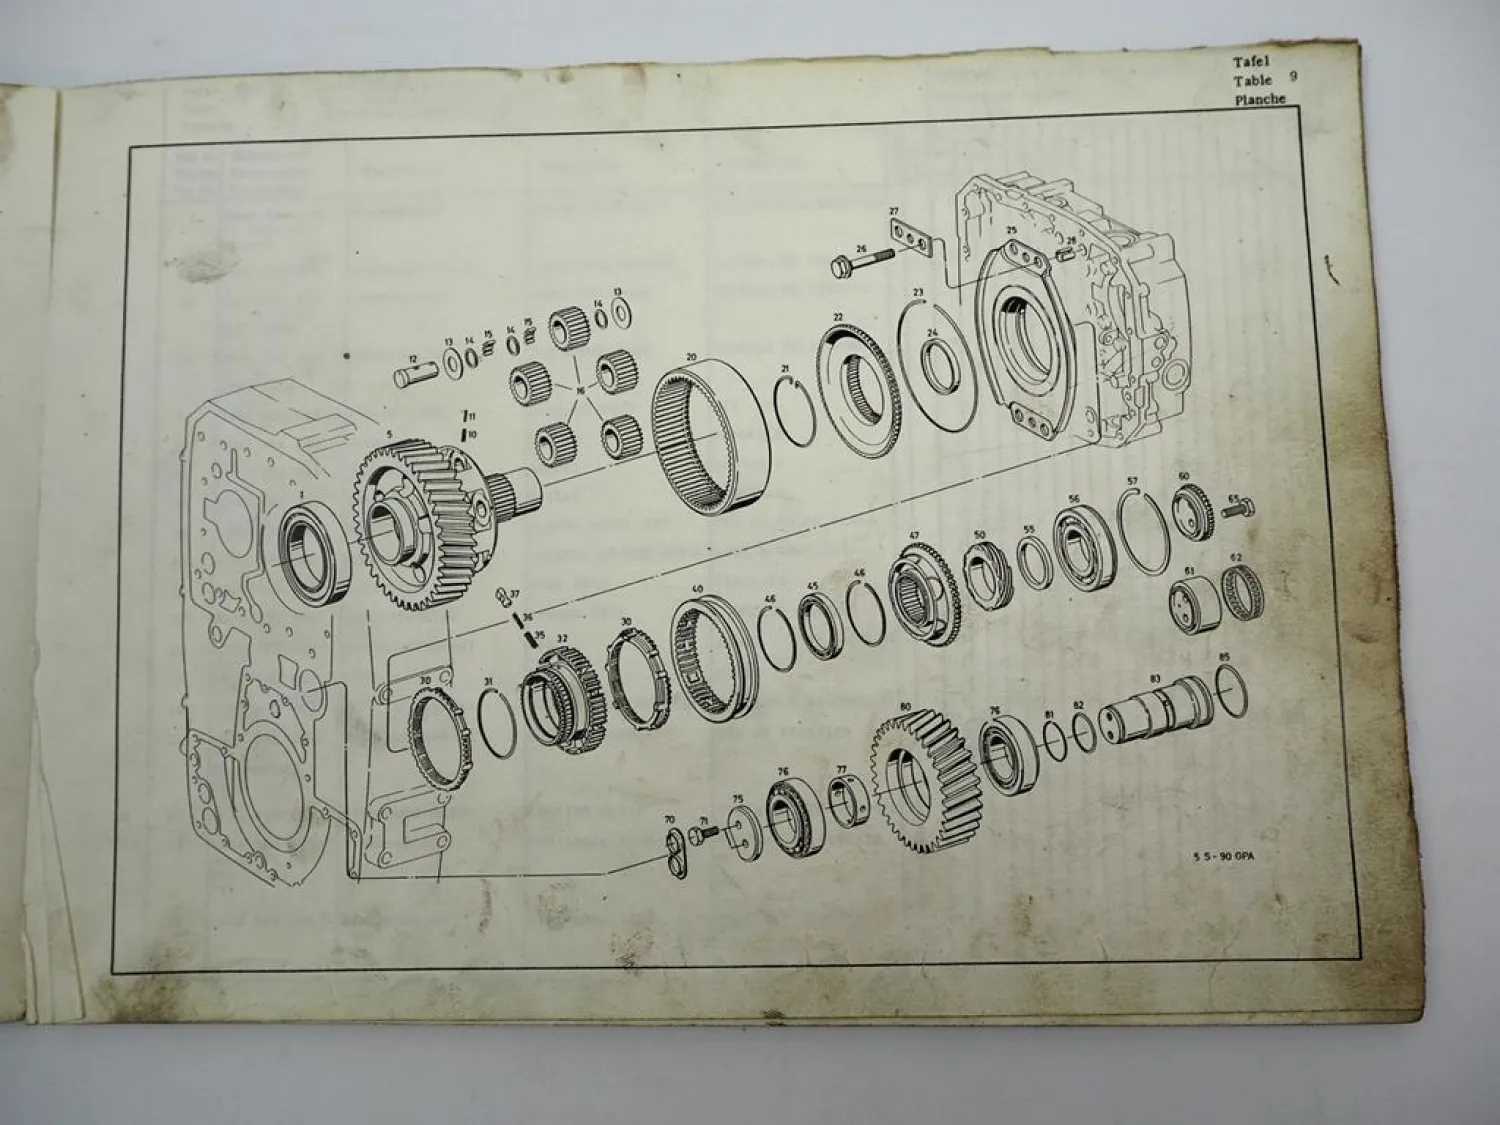 Tafel
Table 9
Planche
27
26
25
28
13
14
15
14
15
14
13
12
16
11
10
5
1
20
21
22
23
24
37
36
35
32
30
31
30
40
46
45
46
47
50
55
56
57
60
65
61
62
70
71
75
76
77
80
76
81
82
83
85
5 S - 90 GPA